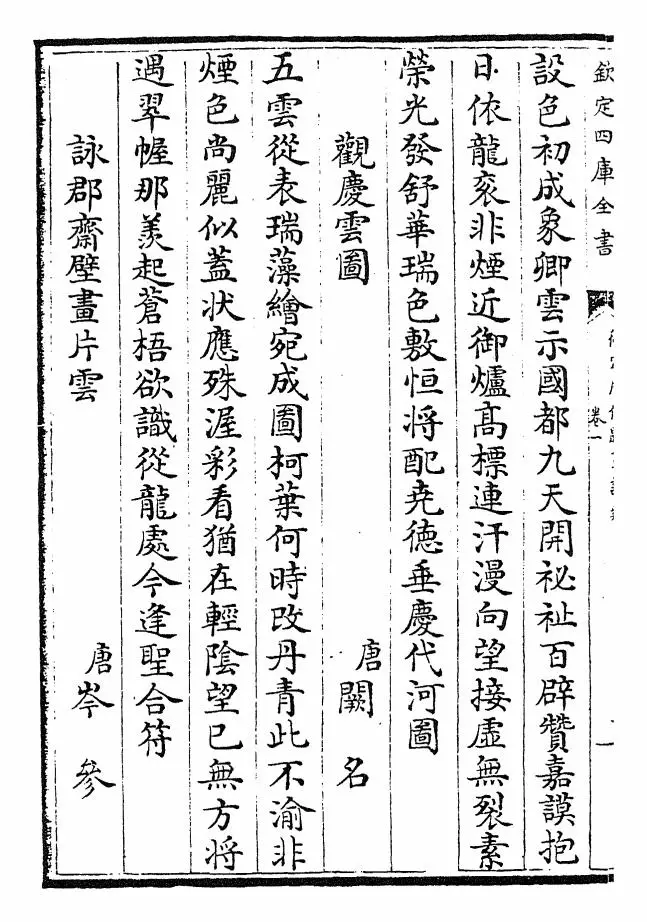 欽定四庫全書
卷一
設色初成象卿雲示國都九天開祕祉百辟贊嘉謨抱
日依龍衮非煙近御爐高標連汗漫向望接虛無裂素
榮光發舒華瑞色敷恒將配尭德垂慶代河圖
觀慶雲圖
唐闕名
五雲從表瑞藻繪宛成圖柯葉何時改丹青此不渝非
煙色尚麗似蓋状應殊渥彩看猶在輕陰望已無方將
遇翠幄那羨起蒼梧欲識從龍處今逢聖合符
詠郡齋壁畫片雲
唐岑參